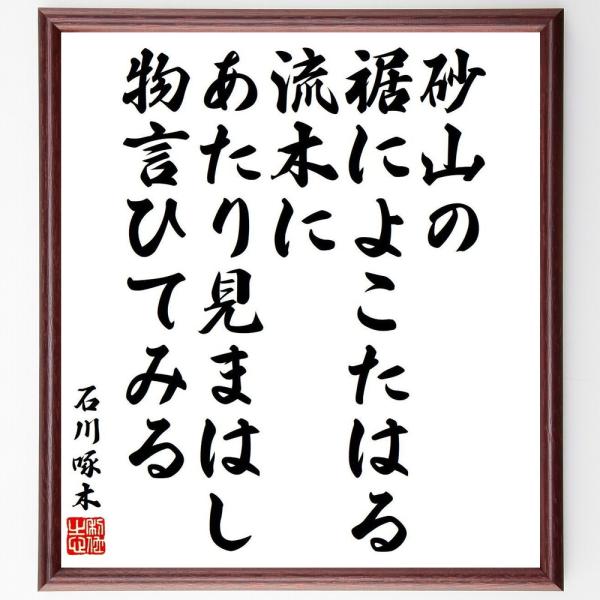 砂山の
裾によこたはる
流木に
あたり見まはし
物言ひてみる
石川啄木